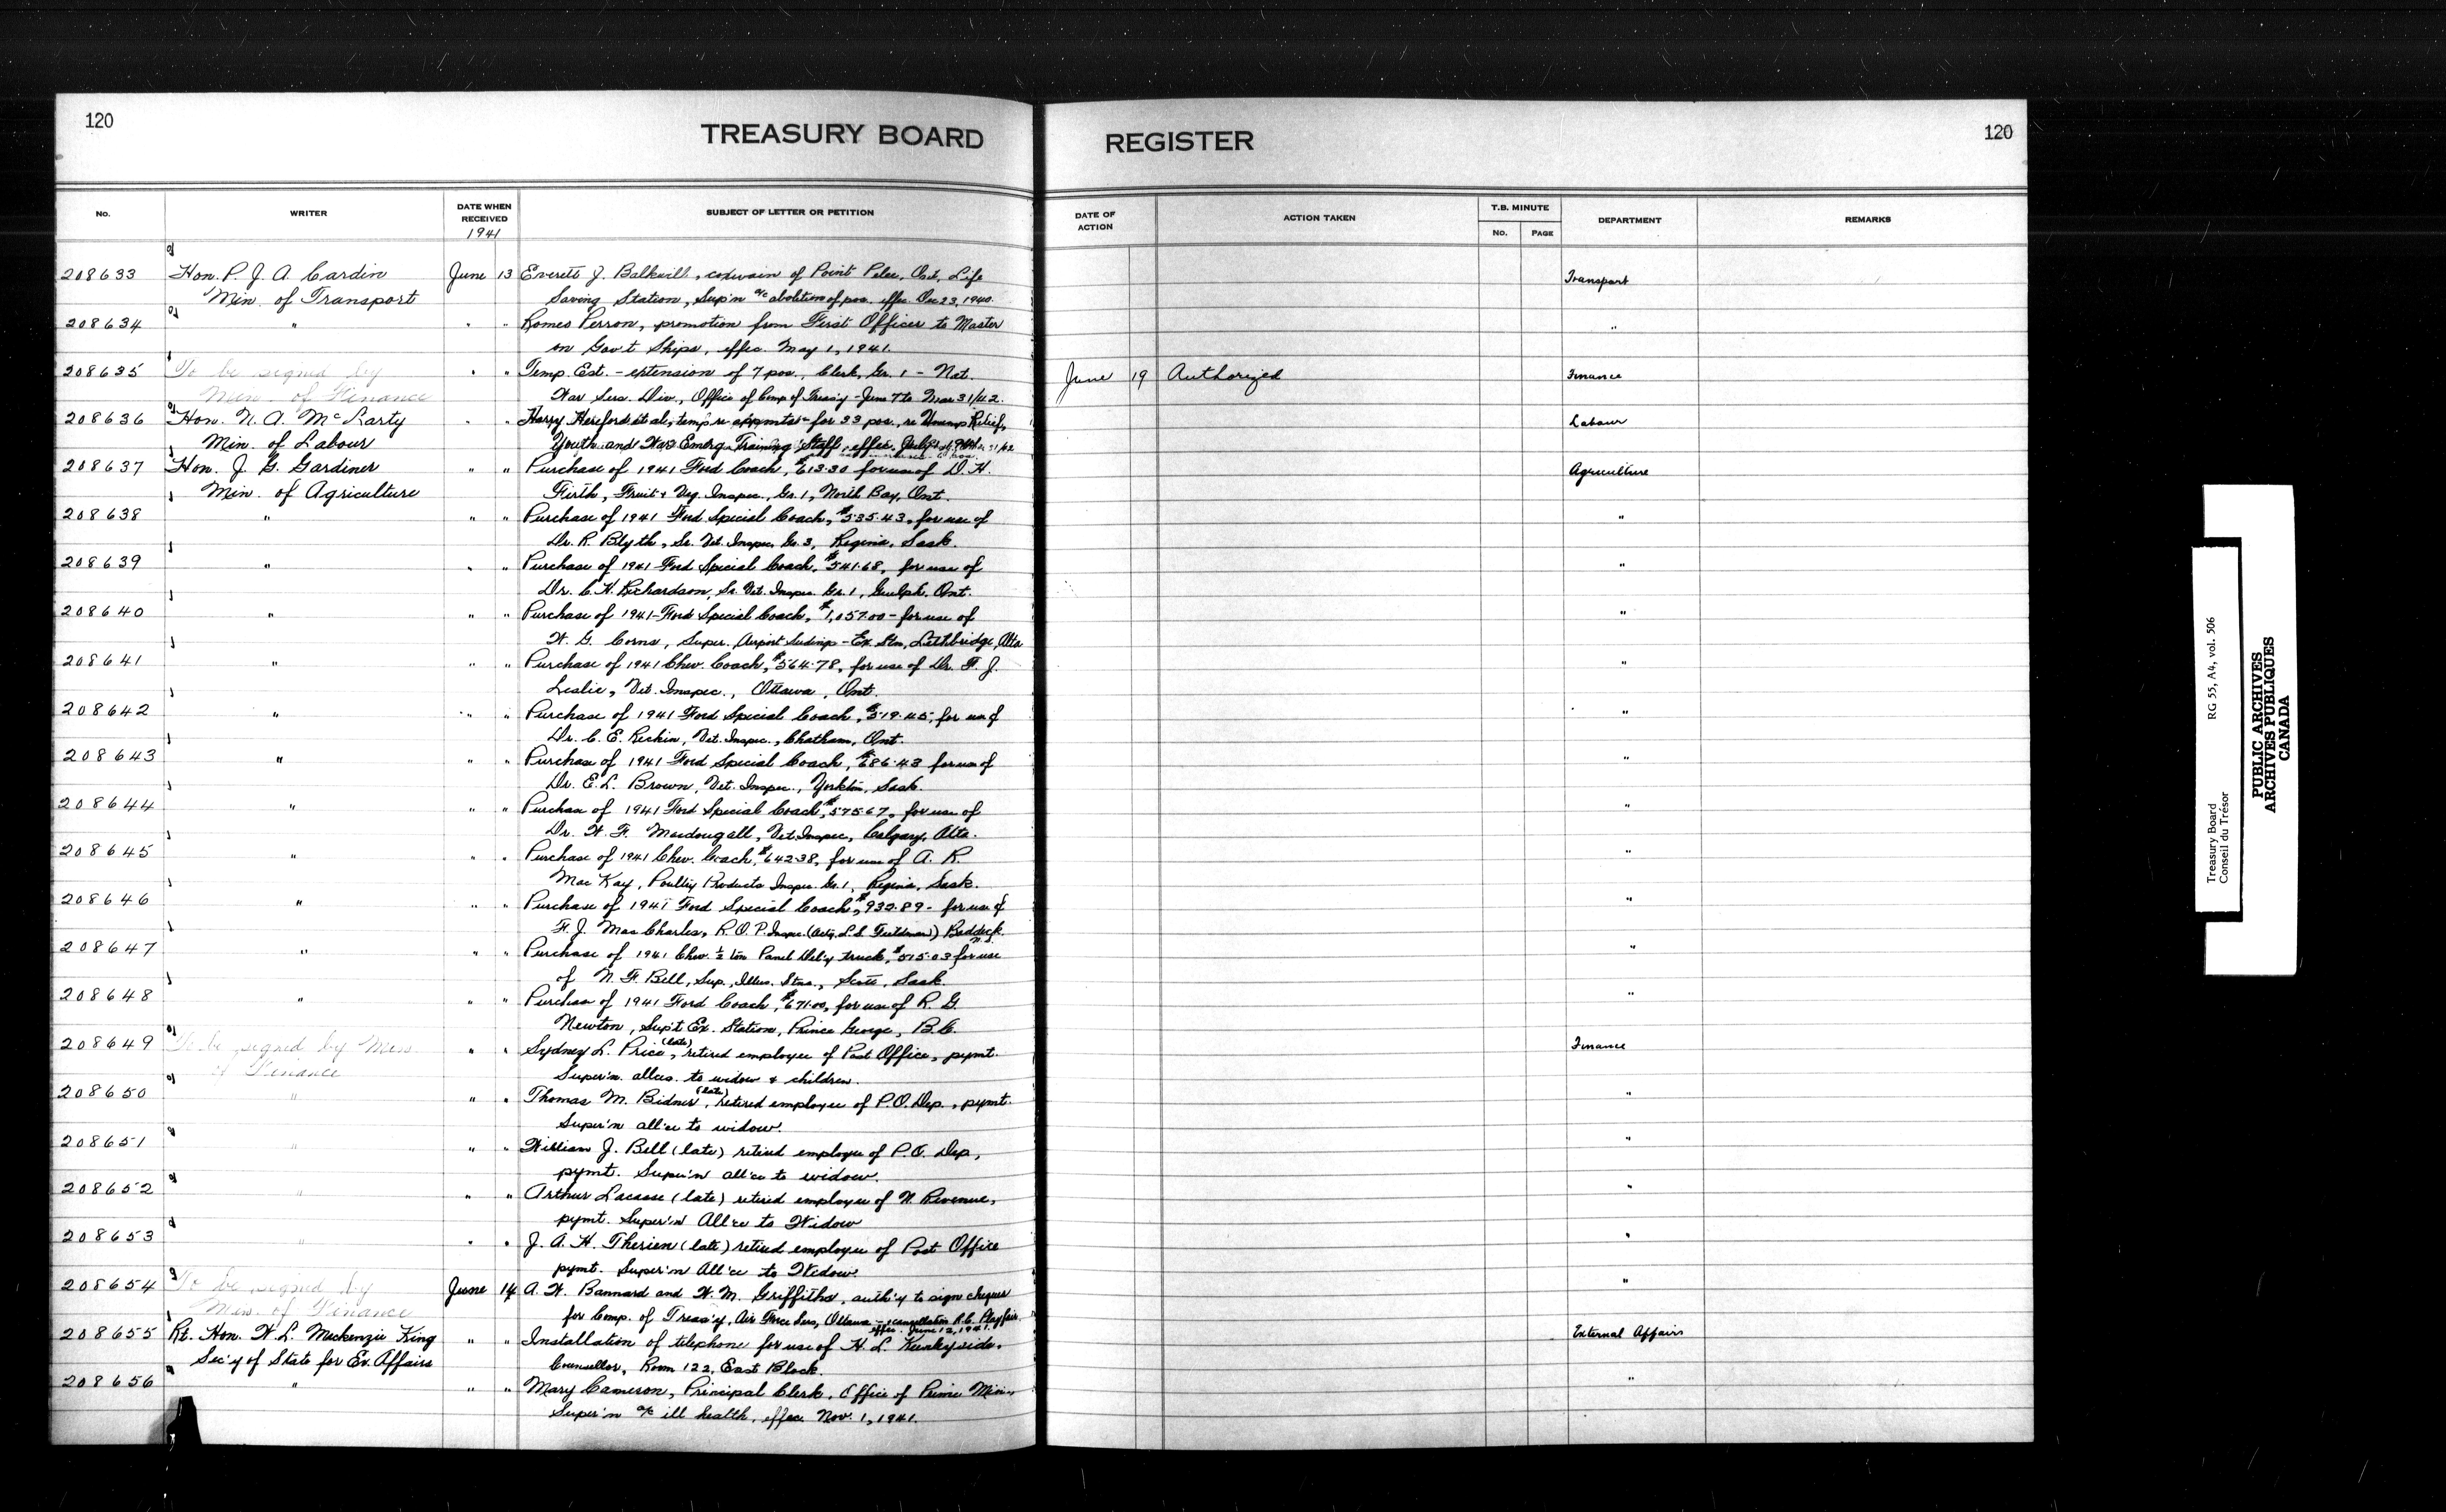 120
TREASURY BOARD REGISTER
120
No. WRITER DATE WHEN RECEIVED SUBJECT OF LETTER OR PETITION DATE OF ACTION ACTION TAKEN T.B. MINUTE No. PAGE DEPARTMENT REMARKS
1941
208633 Hon. P. J. A. Cardin June 13 Everett J. Balkwill, coxwain of Point Pelee, Ont, Life Transport
Min. of Transport Saving Station, Sup'n a/c abolition of pos. effec. Dec 23, 1940.
208634 " " " Romeo Perron, promotion from First Officer to Master "
on Gov't Ships, effec. May 1, 1941.
208635 To be signed by " " Temp. Est. - extension of 7 pos., Clerk, Gr. 1 - Nat. June 19 Authorized Finance
Min. of Finance War Serv. Div., Office of Comp of Treas'y - June 7 to Mar 31/42.
208636 Hon. N. A. McLarty " " Harry Hereford et al, temp re appmts - for 33 pos., re Unemp Relief, Labour
Min. of Labour Youth and War Emerg. Training Staff, effec.
208637 Hon. J. G. Gardiner " " Purchase of 1941 Ford Coach, $613.30 for use of D. H. Agriculture
Min. of Agriculture Firth, Fruit & Veg. Inspec., Gr. 1, North Bay, Ont.
208638 " " " Purchase of 1941 Ford Special Coach, $535.43, for use of "
Dr. R. Blyth, Sr. Vet. Inspec. Gr. 3, Regina, Sask.
208639 " " " Purchase of 1941 Ford Special Coach, $541.68, for use of "
Dr. C. H. Richardson, Sr. Vet. Inspec. Gr. 1, Guelph, Ont.
208640 " " " Purchase of 1941 Ford Special Coach, $1,057.00 - for use of "
W. G. Corns, Super. Airport Seedings - Ex. Stn, Lethbridge, Alta
208641 " " " Purchase of 1941 Chev. Coach, $564.78, for use of Dr. F. J. "
Leslie, Vet. Inspec., Ottawa, Ont.
208642 " " " Purchase of 1941 Ford Special Coach, $519.45, for use of "
Dr. C. E. Rickin, Vet. Inspec., Chatham, Ont.
208643 " " " Purchase of 1941 Ford Special Coach, $686.43 for use of "
Dr. E. L. Brown, Vet. Inspec., Yorkton, Sask.
208644 " " " Purchase of 1941 Ford Special Coach, $575.67, for use of "
Dr. W. F. Macdougall, Vet. Inspec, Calgary, Alta.
208645 " " " Purchase of 1941 Chev. Coach, $642.38, for use of A. R. "
MacKay, Poultry Products Inspec. Gr. 1, Regina, Sask.
208646 " " " Purchase of 1941 Ford Special Coach, $932.89 - for use of "
F. J. MacCharles, R.O.P. Inspec. (Actg. L.S. Fieldman) Baddeck N.S.
208647 " " " Purchase of 1941 Chev. ½ ton Panel Deliv'y truck, $515.03 for use "
of N. F. Bell, Sup., Illus. Stns., Scott, Sask.
208648 " " " Purchase of 1941 Ford Coach, $671.00, for use of R. G. "
Newton, Sup't Ex. Station, Prince George, B.C.
208649 To be signed by Min. " " Sydney L. Price (late), retired employee of Post Office, pymt. Finance
of Finance Super'n. allces. to widow & children.
208650 " " " Thomas M. Bidner (late), retired employee of P.O. Dep., pymt. "
Super'n all'ce to widow.
208651 " " " William J. Bell (late) retired employee of P.O. Dep, "
pymt. Super'n all'ce to widow.
208652 " " " Arthur Lacasse (late) retired employee of N. Revenue, "
pymt. Super'n All'ce to Widow
208653 " " " J. A. H. Therien (late) retired employee of Post Office "
pymt. Super'n All'ce to Widow.
208654 To be signed by June 14 A. W. Bannard and W. M. Griffiths, auth'y to sign cheques "
Min. of Finance for Comp. of Treas'y, Air Force Serv, Ottawa - cancellation R.C. Playfair, effec. June 12, 1941.
208655 Rt. Hon. W. L. Mackenzie King " " Installation of telephone for use of H. L. Keenleyside, External Affairs
Sec'y of State for Ex. Affairs Counsellor, Room 122, East Block.
208656 " " " Mary Cameron, Principal Clerk, Office of Prime Min., "
Super'n a/c ill health, effec. Nov. 1, 1941.
Treasury Board RG 55, A4, vol. 506
Conseil du Trésor
PUBLIC ARCHIVES
ARCHIVES PUBLIQUES
CANADA